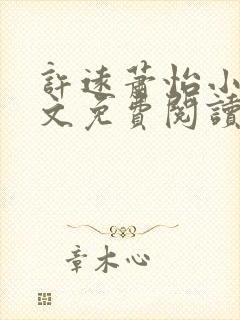 許遠蕭怡小
文免費閱讀
章木心